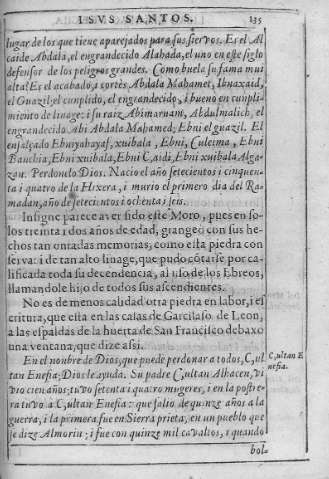 ISVS SANTOS. 135
lugar de los que tiene aparejados para sus siervos. Es el Al
caide Abdala, el engrandecido Alabada, el uno en este siglo
defensor de los peligros grandes. Como buela su fama mui
alta! Es el acabado, i cortès Abdala Mahamet, Ibnaxaid,
el Guazil, el cumplido, el engrandecido, i bueno en cumpli
miento de linage: i su raiz Abimarnam, Abdulmalich, el
engrandecido Abi Abdala Mahamed, Ebni el guazil. El
ensalçado Ebuyahayaf, xuibala, Ebni, Culeima, Ebni
Banchia, Ebni xuibala, Ebni Caidi, Ebni xuibala Alga-
zan. Perdonulo Dios. Nacio el año setecientos i cinquen
ta i quatro de la Hixera, i murio el primero dia del Ra-
madan, año de setecientos i ochenta i seis.
Insigne parece aver sido este Moro, pues en so-
los treinta i dos años de edad, grangeò con sus he-
chos tan onradas memorias, como esta piedra con
serva: i de tan alto linage, que pudo cótarse por ca-
lificada toda su decendencia, al uso de los Ebreos,
llamandole hijo de todos sus ascendientes.
No es de menos calidad otra piedra en labor, i es
critura, que està en las casas de Garcilaso de Leon,
a las espaldas de la huerta de San Francisco debaxo
una ventana, que dize assi.
En el nonbre de Dios, que puede perdonar a todos, C,ult
an Enesia; Dios le ayuda. Su padre C,ultan Alhacen, vi
vio cien años; tuvo setenta i quatro mugeres, i en la postre-
ra tuvo a C,ultan Enesia: que salio de quinze años a la
guerra, i la primera fue en Sierra prieta, en un pueblo que
se dize Almorin; i fue con quinze mil cavallos, i quando
bol-
C,ultan E
nesia.